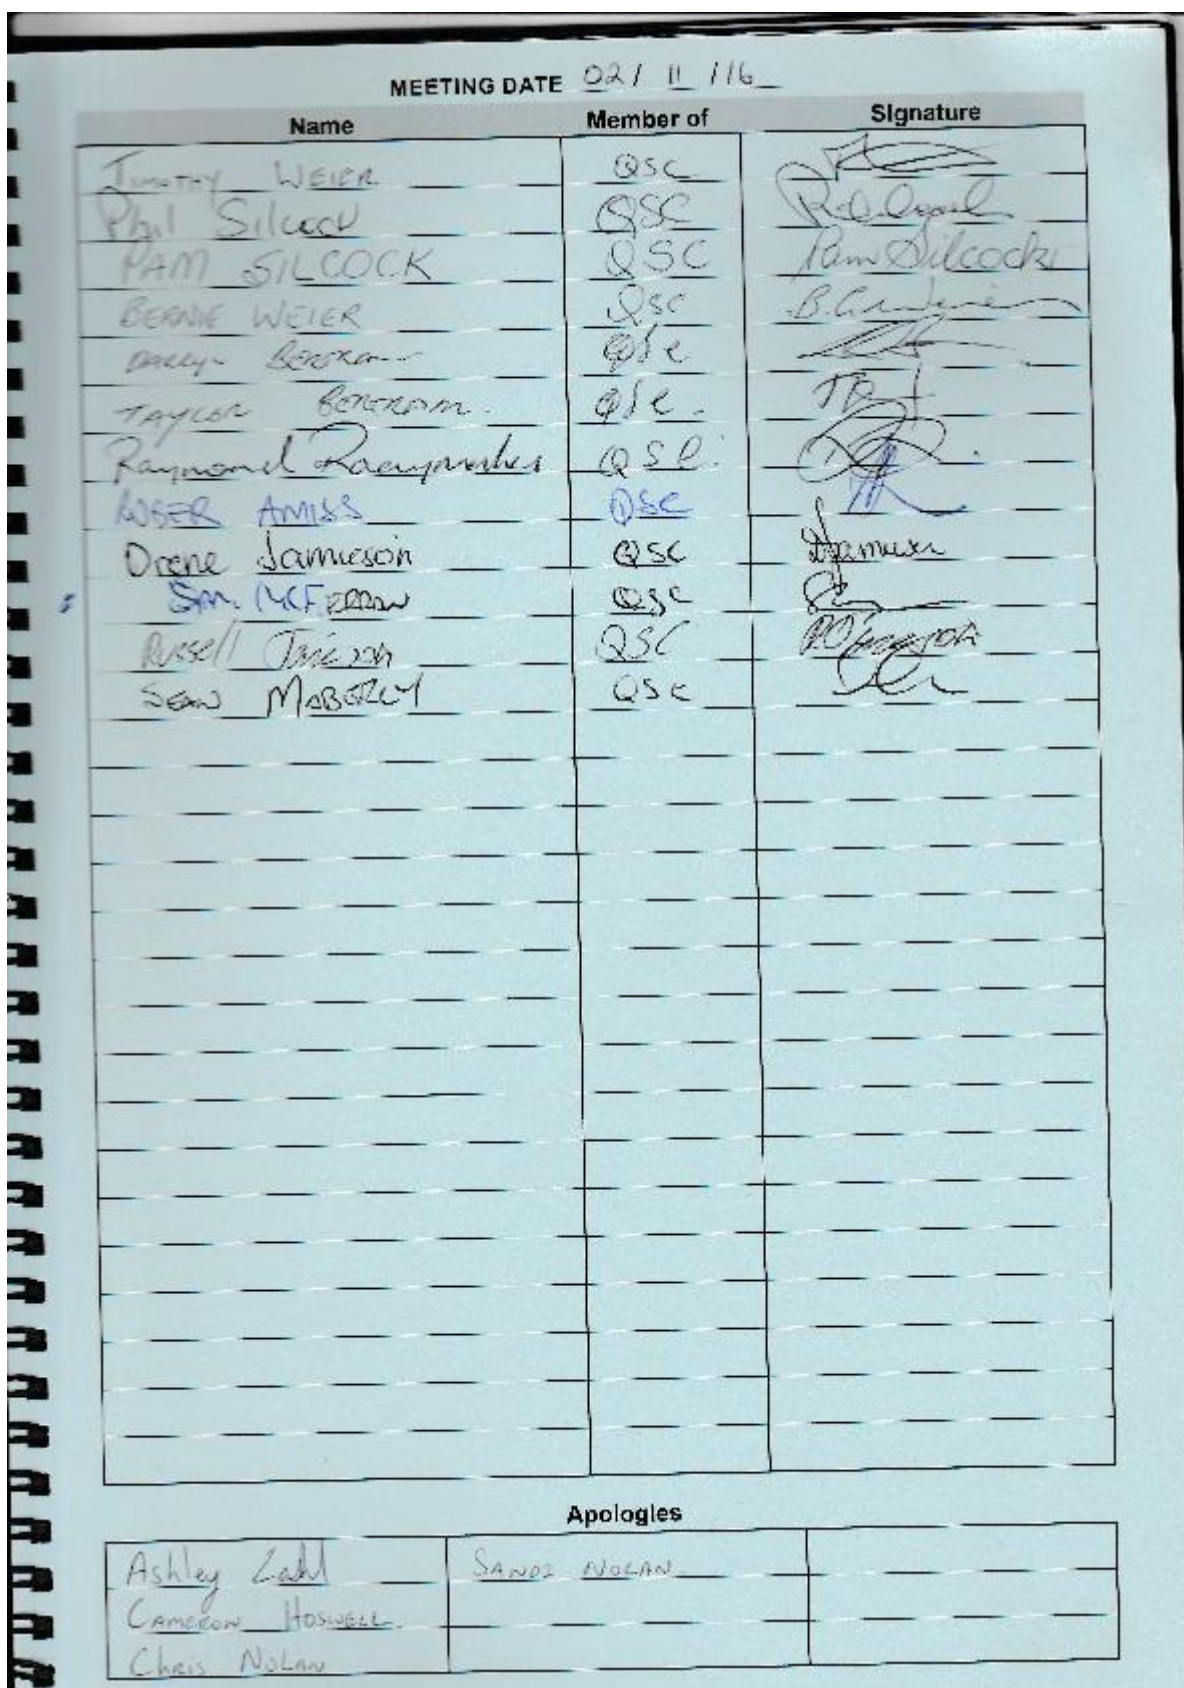 MEETING DATE 02 / 11 / 16
Name Member of Signature
TIMOTHY WEIER QSC
Phil Silcock QSC
PAM SILCOCK QSC Pam Silcock
BERNIE WEIER QSC
DARRYN BERTRAM QSC
TAYLOR BERTRAM. QSC.
Raymond Raeymaekers QSC.
ROGER AMISS QSC
Jamieson QSC DJamieson
SAM MCFERRAN QSC
Russell QSC
SEAN MABERLY QSC
Apologies
Ashley Zahl SANDI NOLAN
CAMERON HOSWELL.
Chris NOLAN